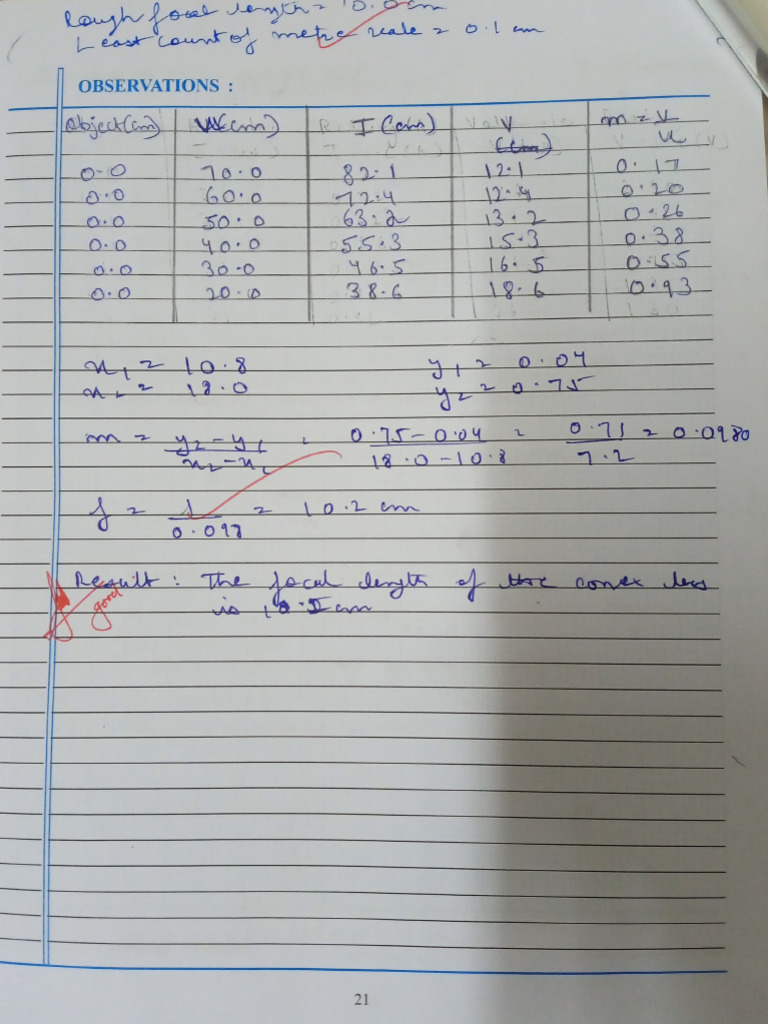 Rough focal length = 10.0 cm
Least count of metre scale = 0.1 cm
OBSERVATIONS :
Object(cm) u(cm) I (cm) V (cm) m = v/u
0.0 70.0 82.1 12.1 0.17
0.0 60.0 72.4 12.4 0.20
0.0 50.0 63.2 13.2 0.26
0.0 40.0 55.3 15.3 0.38
0.0 30.0 46.5 16.5 0.55
0.0 20.0 38.6 18.6 0.93
x₁ = 10.8 y₁ = 0.04
x₂ = 18.0 y₂ = 0.75
m = y₂-y₁/x₂-x₁ = 0.75-0.04/18.0-10.8 = 0.71/7.2 = 0.0980
f = 1/0.098 = 10.2 cm
Result : The focal length of the convex lens
good
is cm
21